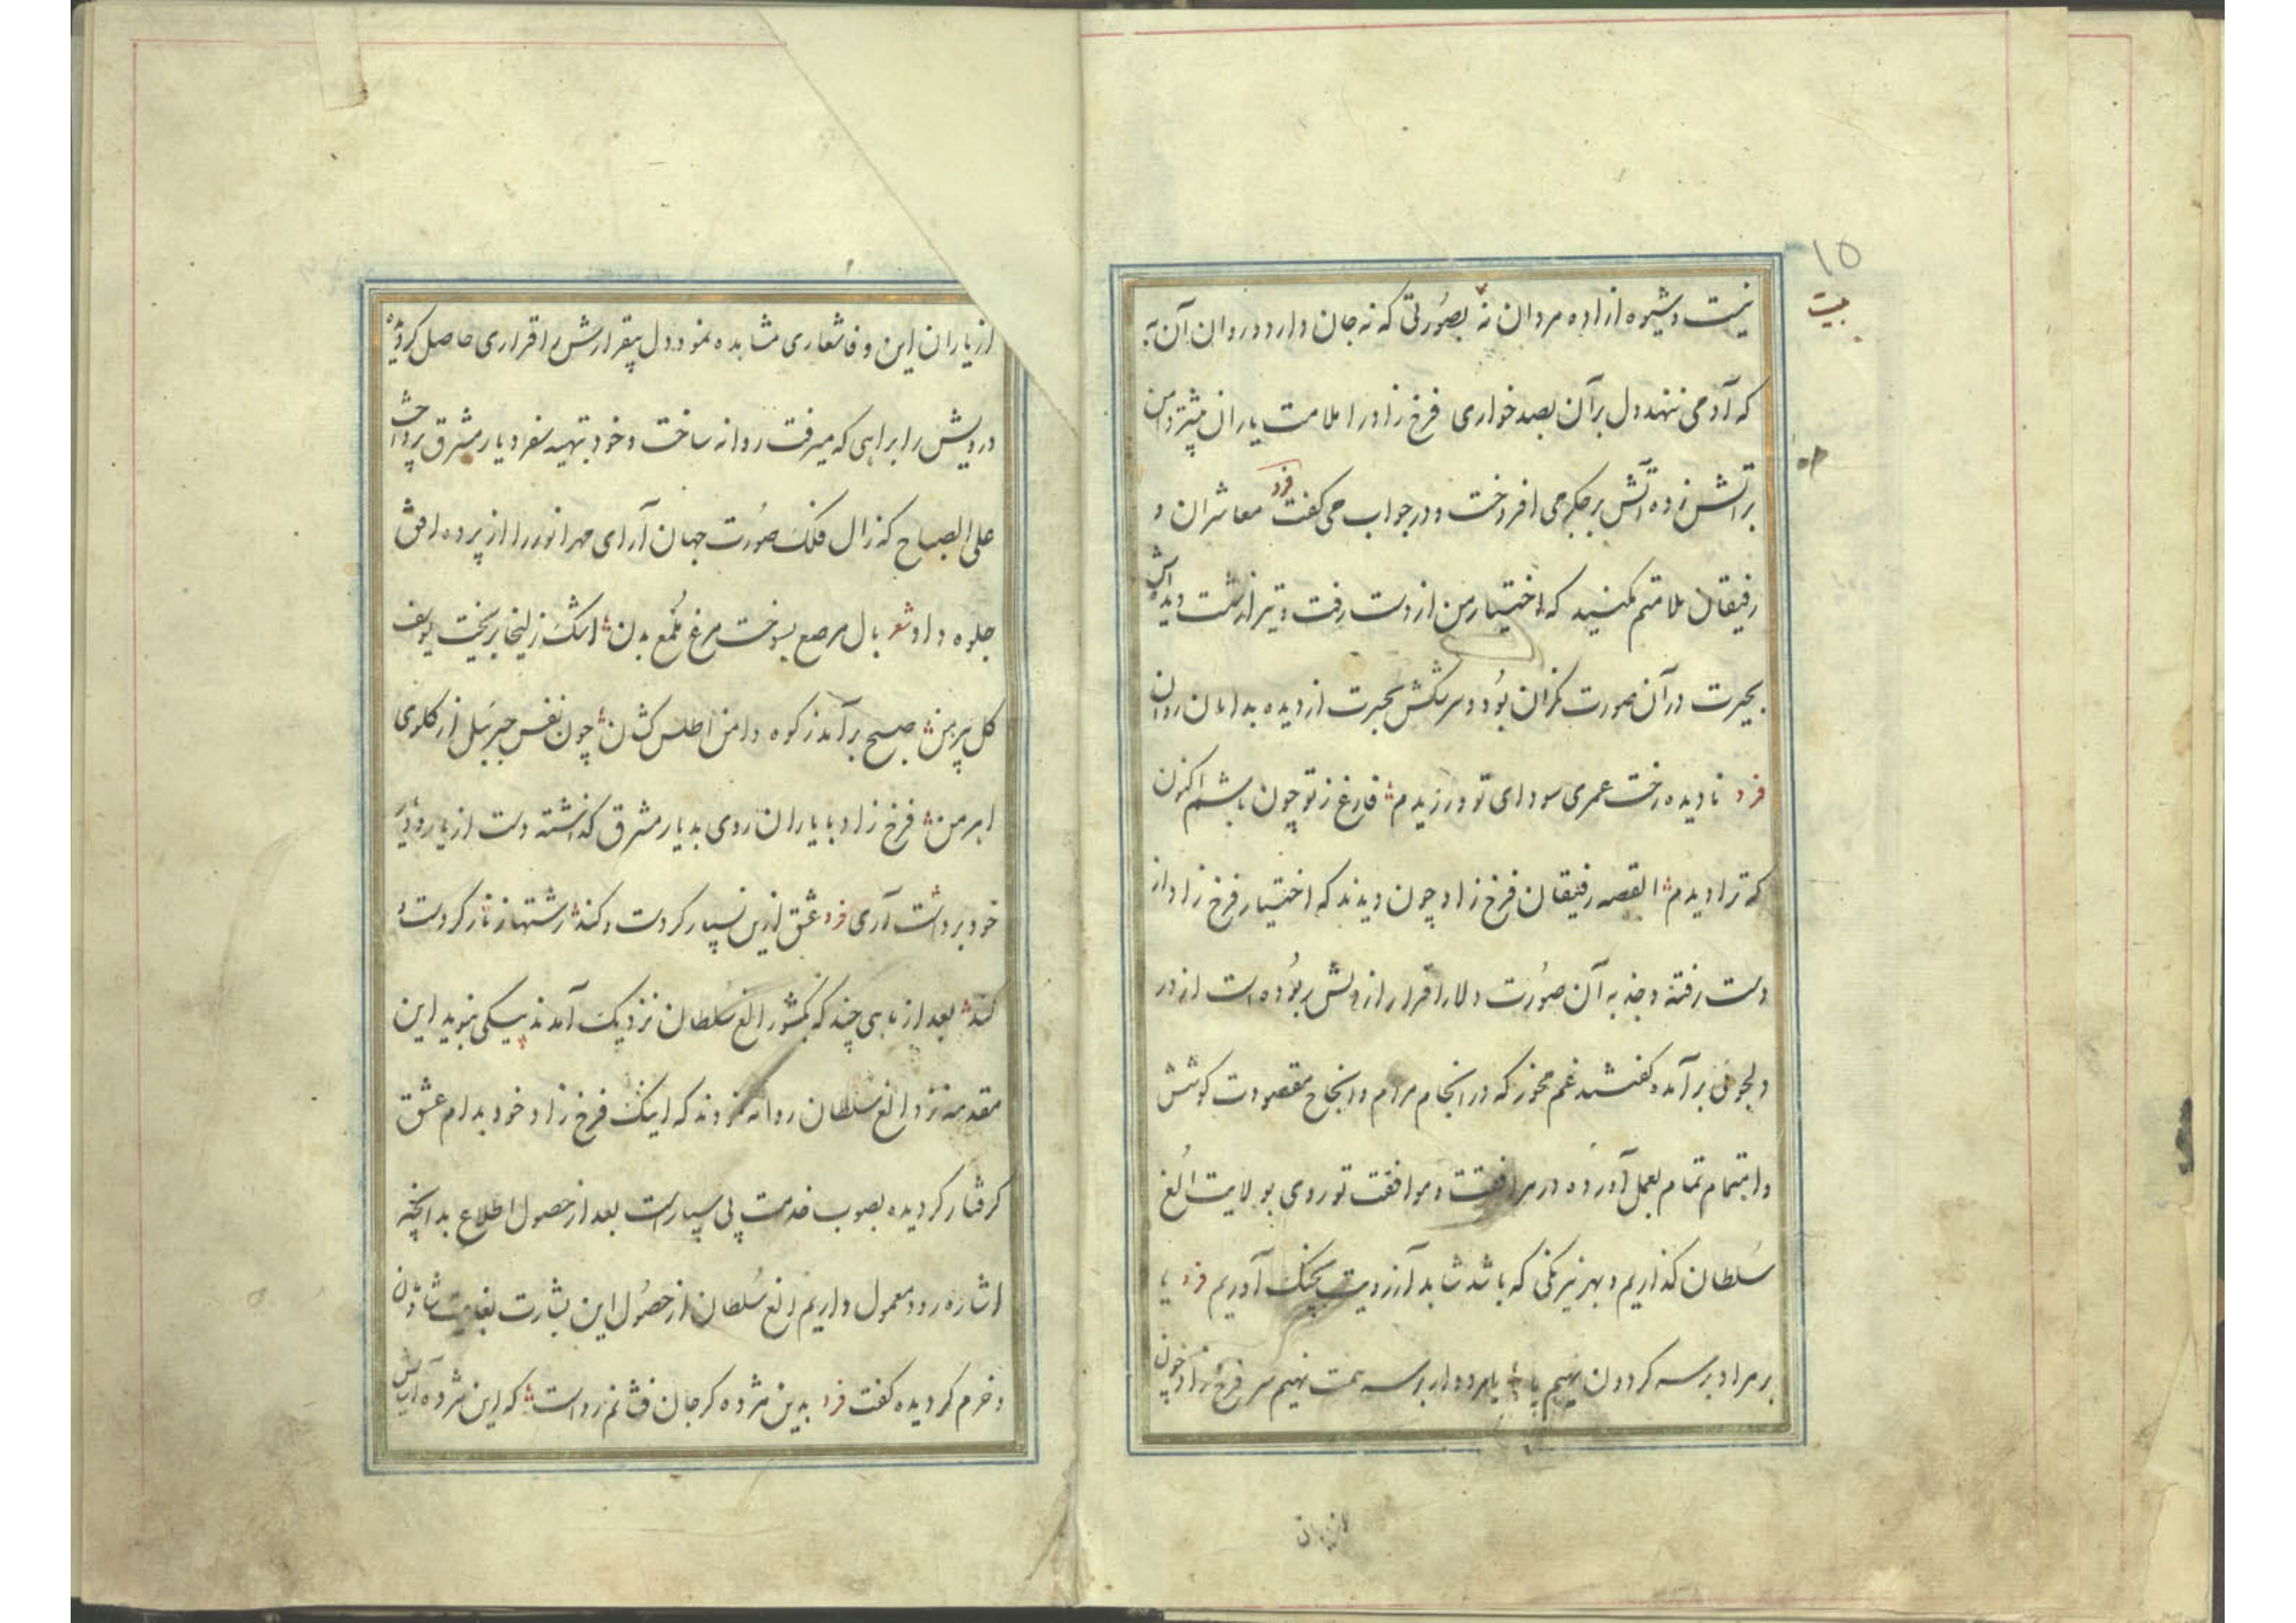 ۱۵
بیت
نیست و شیوه ازاده مردان نه بصورتی که نه جان دارد و روان آن به
که آدمی ننهد دل بر آن بصد خواری فرخ زاد را ملامت یاران بیشتر دامن
بر آتش زده آتش بر جگر می افروخت و در جواب می گفت فرد معاشران و
رفیقان ملامتم مکنید که اختیار من از دست رفت و تیر از شست دیده اش
بحیرت در آن صورت نگران بود و سرشکش بحیرت از دیده بدامان روان
فرد نادیده رخت عمری سودای تو ورزیدم فارغ ز تو چون باشم اکنون
که ترا دیدم القصه رفیقان فرخ زاد چون دیدند که اختیار فرخ زاد از
دست رفته و جذبه آن صورت دلارا قرار از دلش ربوده است از در
دلجوئی بر آمده گفتند غم مخور که در انجام مرام و انجاح مقصودت کوشش
و اهتمام تمام بعمل آورده در مرافقت و موافقت تو روی بولایت الغ
سلطان گذاریم و بهر نیرنگی که باشد شاید آرزویت بچنگ آوریم فرد یا
بر مراد بر سر گردون نهیم پا یا مردوار بر سر همت نهیم سر فرخ زاد چون
از یاران
از یاران این وفا شعاری مشاهده نمود دل بیقرارش را قراری حاصل کردیده
درویش را براهی که میرفت روانه ساخت و خود بتهیه سفر دیار مشرق پرداخت
علی الصباح که زال فلک صورت جهان آرای مهر انور را از پرده افق
جلوه داد شعر بال مرصع بسوخت مرغ ملمع بدن اشک زلیخا بریخت یوسف
گل پیرهن صبح بر آمد ز کوه دامن اطلس کشان چون نفس جبرئیل از گلوی
اهرمن فرخ زاد با یاران روی بدیار مشرق گذاشته دست از یار و دیار
خود برداشت آری فرد عشق ازین بسیار کردست و کند رشتها ز نار کردست و
کند بعد از ماهی چند که بکشور الغ سلطان نزدیک آمدند پیکی بنوید این
مقدمه نزد الغ سلطان روانه نمودند که اینک فرخ زاد خود بدام عشق
گرفتار گردیده بصوب خدمت پی سپار است بعد از حصول اطلاع بدانچه
اشاره رود معمول داریم الغ سلطان از حصول این بشارت بغایت شادمان
و خرم گردیده گفت فرد بدین مژده گر جان فشانم رواست که این مژده آسایش